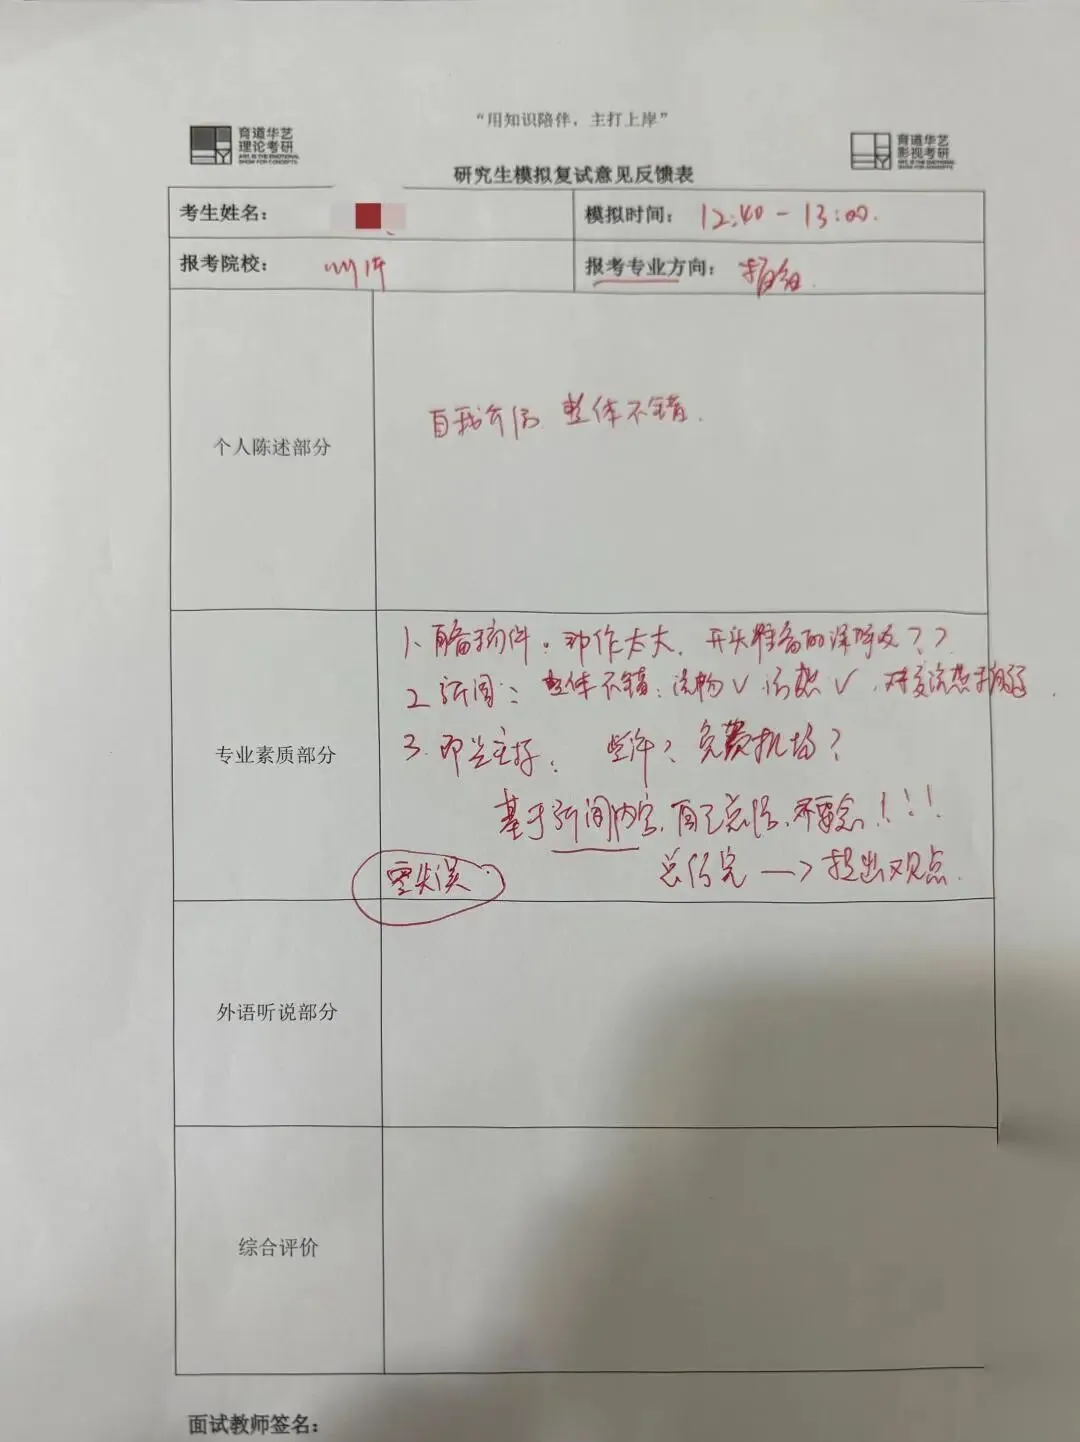 “用知识陪伴，主打上岸”
育道华艺
理论考研
ART, IS THE EMOTIONAL
SHOW FOR CONCEPTS
育道华艺
影视考研
ART, IS THE EMOTIONAL
SHOW FOR CONCEPTS
研究生模拟复试意见反馈表
考生姓名：
模拟时间： 12:40 - 13:00.
报考院校： 川传
报考专业方向：
个人陈述部分
自我介绍 整体不错.
专业素质部分
1、自备稿件。动作太大、开头准备的深呼吸？？
2 新闻： 整体不错：流畅√ √. 对交流感
3. 即兴主持： 些许？ 免费机场？
基于新闻内容，自己总结，不要念！！！
总结完 —> 提出观点.
零失误.
外语听说部分
综合评价
面试教师签名：